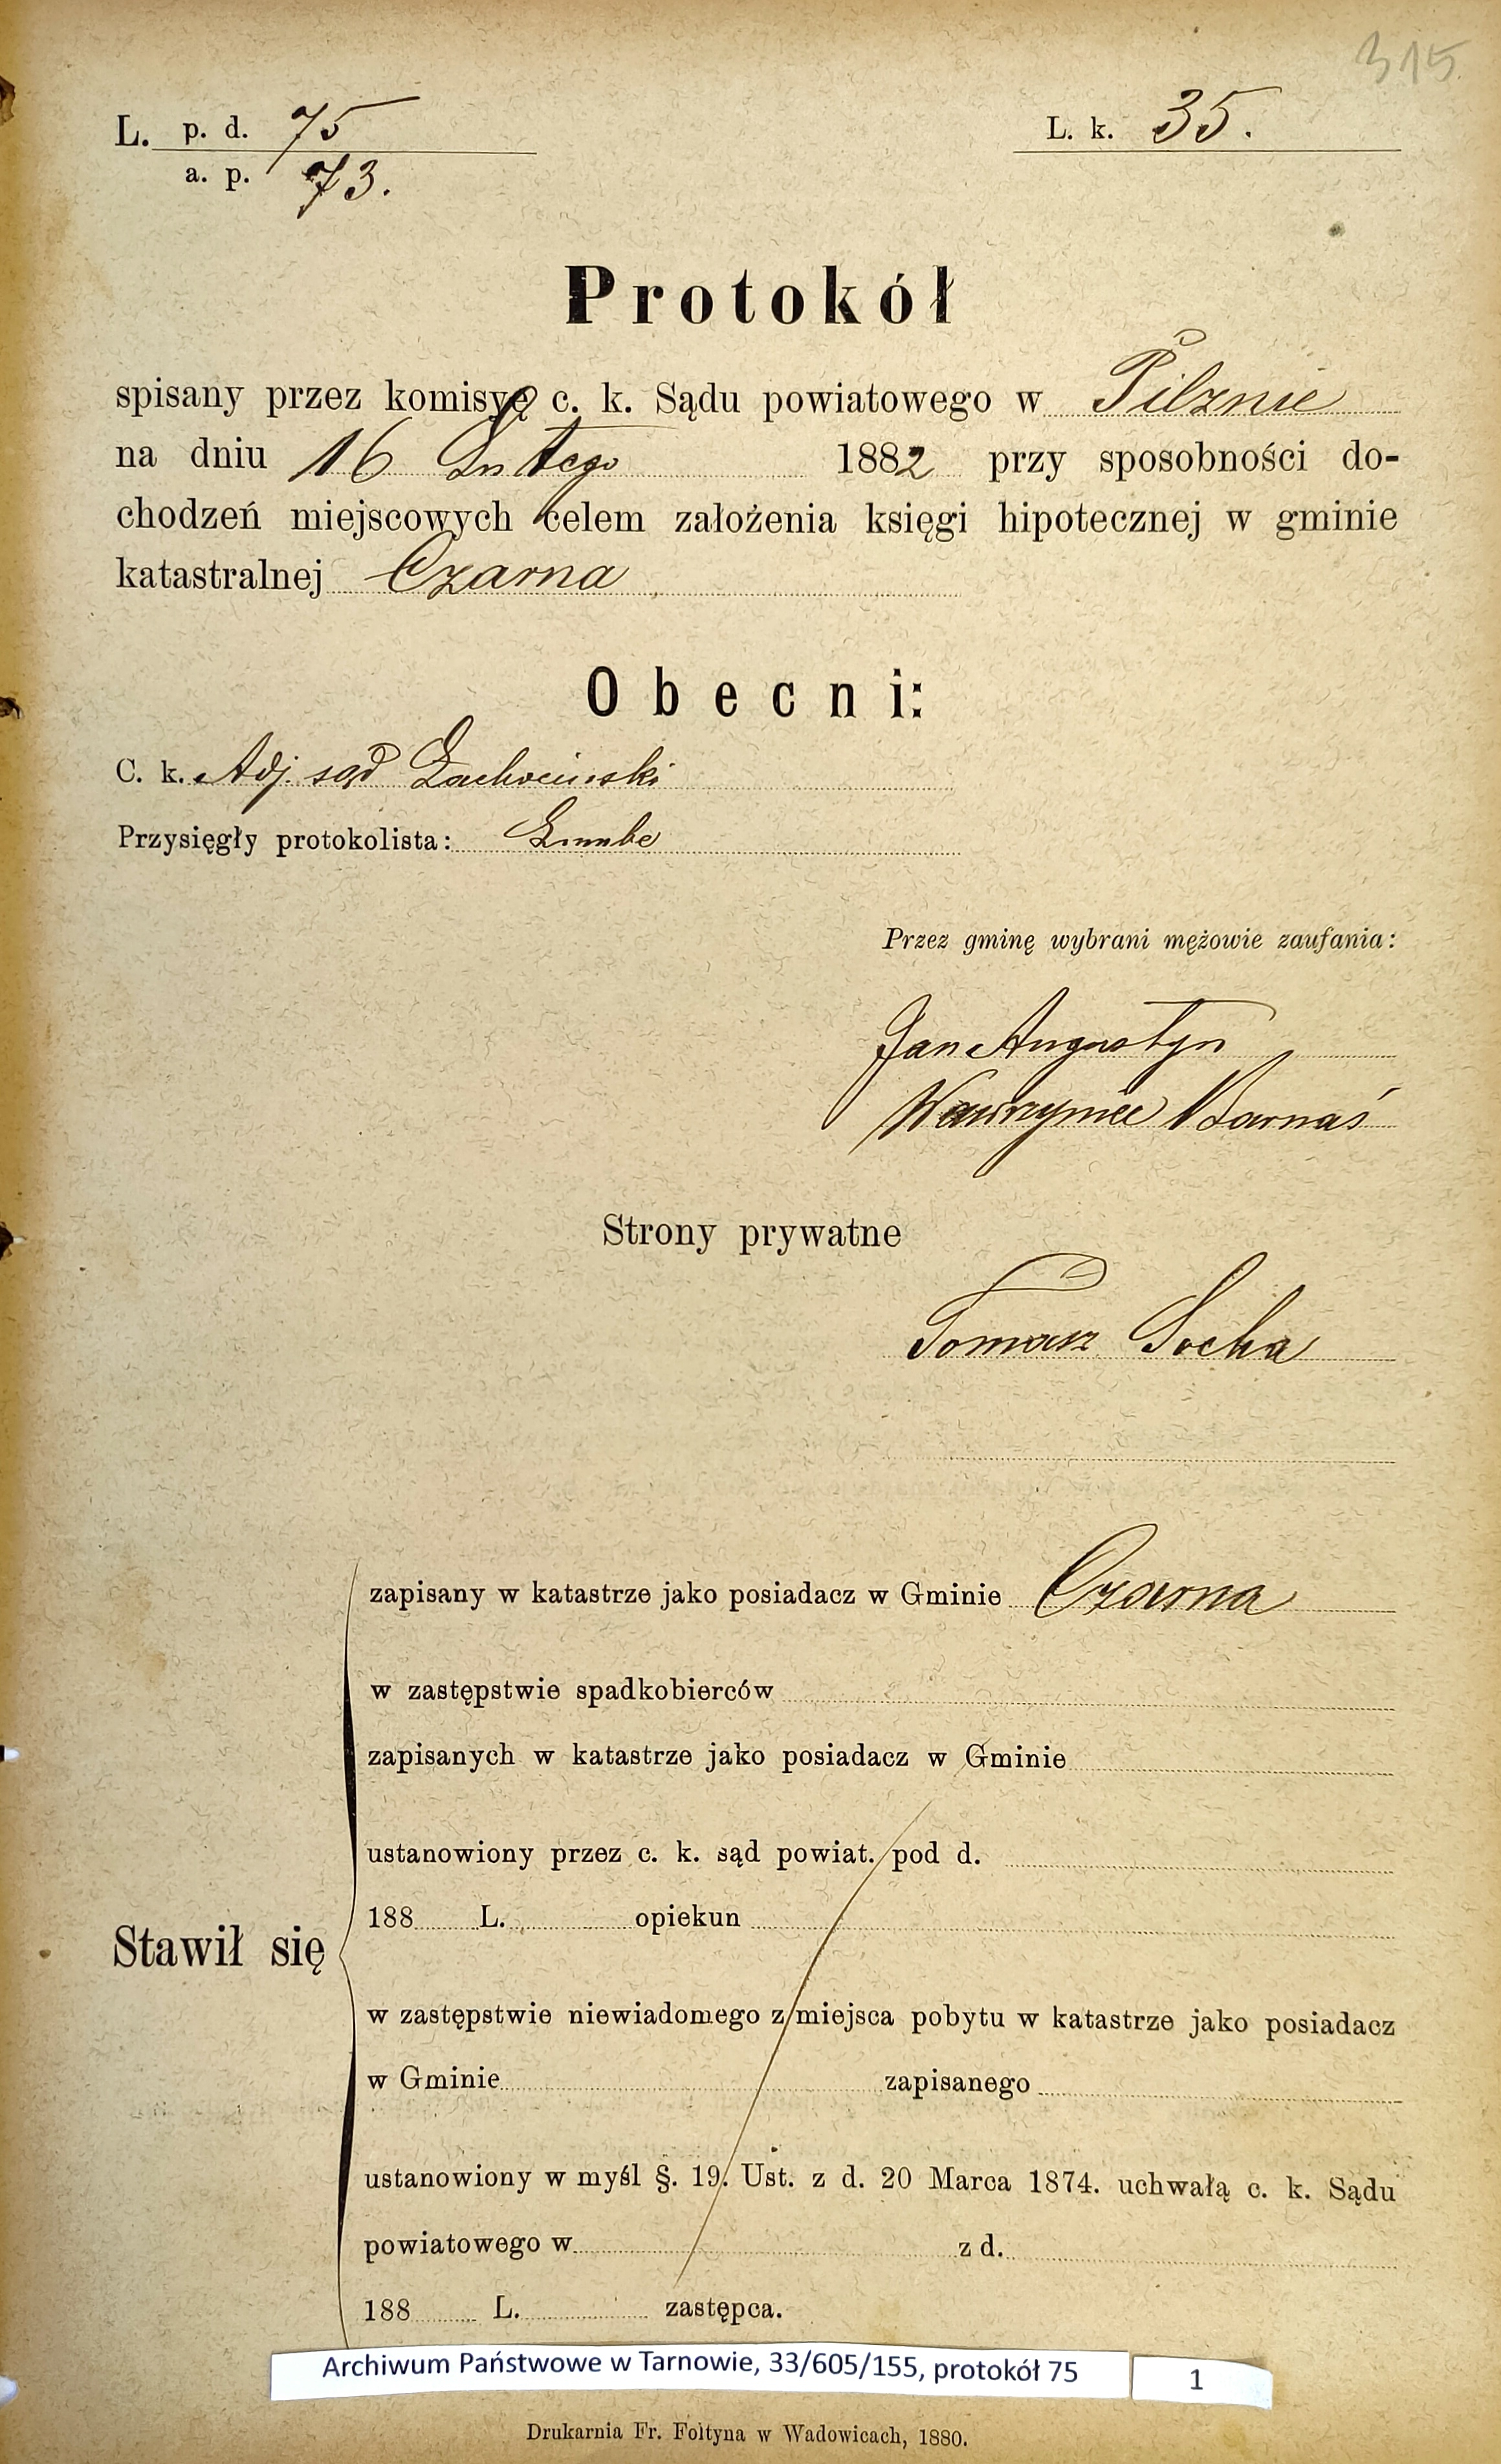 315
L. p. d. 75
L. k. 35.
a. p. 73.
Protokół
spisany przez komisyę c. k. Sądu powiatowego w Pilznie
na dniu 16 Lutego 1882 przy sposobności do-
chodzeń miejscowych celem założenia księgi hipotecznej w gminie
katastralnej Czarna
Obecni:
C. k. Adj. sąd
Przysięgły protokolista:
Przez gminę wybrani mężowie zaufania:
Jan Augustyn
Wawrzyniec Barnaś
Strony prywatne
Tomasz Socha
zapisany w katastrze jako posiadacz w Gminie Czarna
w zastępstwie spadkobierców
zapisanych w katastrze jako posiadacz w Gminie
ustanowiony przez c. k. sąd powiat. pod d.
188 L. opiekun
Stawił się
w zastępstwie niewiadomego z miejsca pobytu w katastrze jako posiadacz
w Gminie zapisanego
ustanowiony w myśl §. 19. Ust. z d. 20 Marca 1874. uchwałą c. k. Sądu
powiatowego w z d.
188 L. zastępca.
Archiwum Państwowe w Tarnowie, 33/605/155, protokół 75 1
Drukarnia Fr. Foltyna w Wadowicach, 1880.